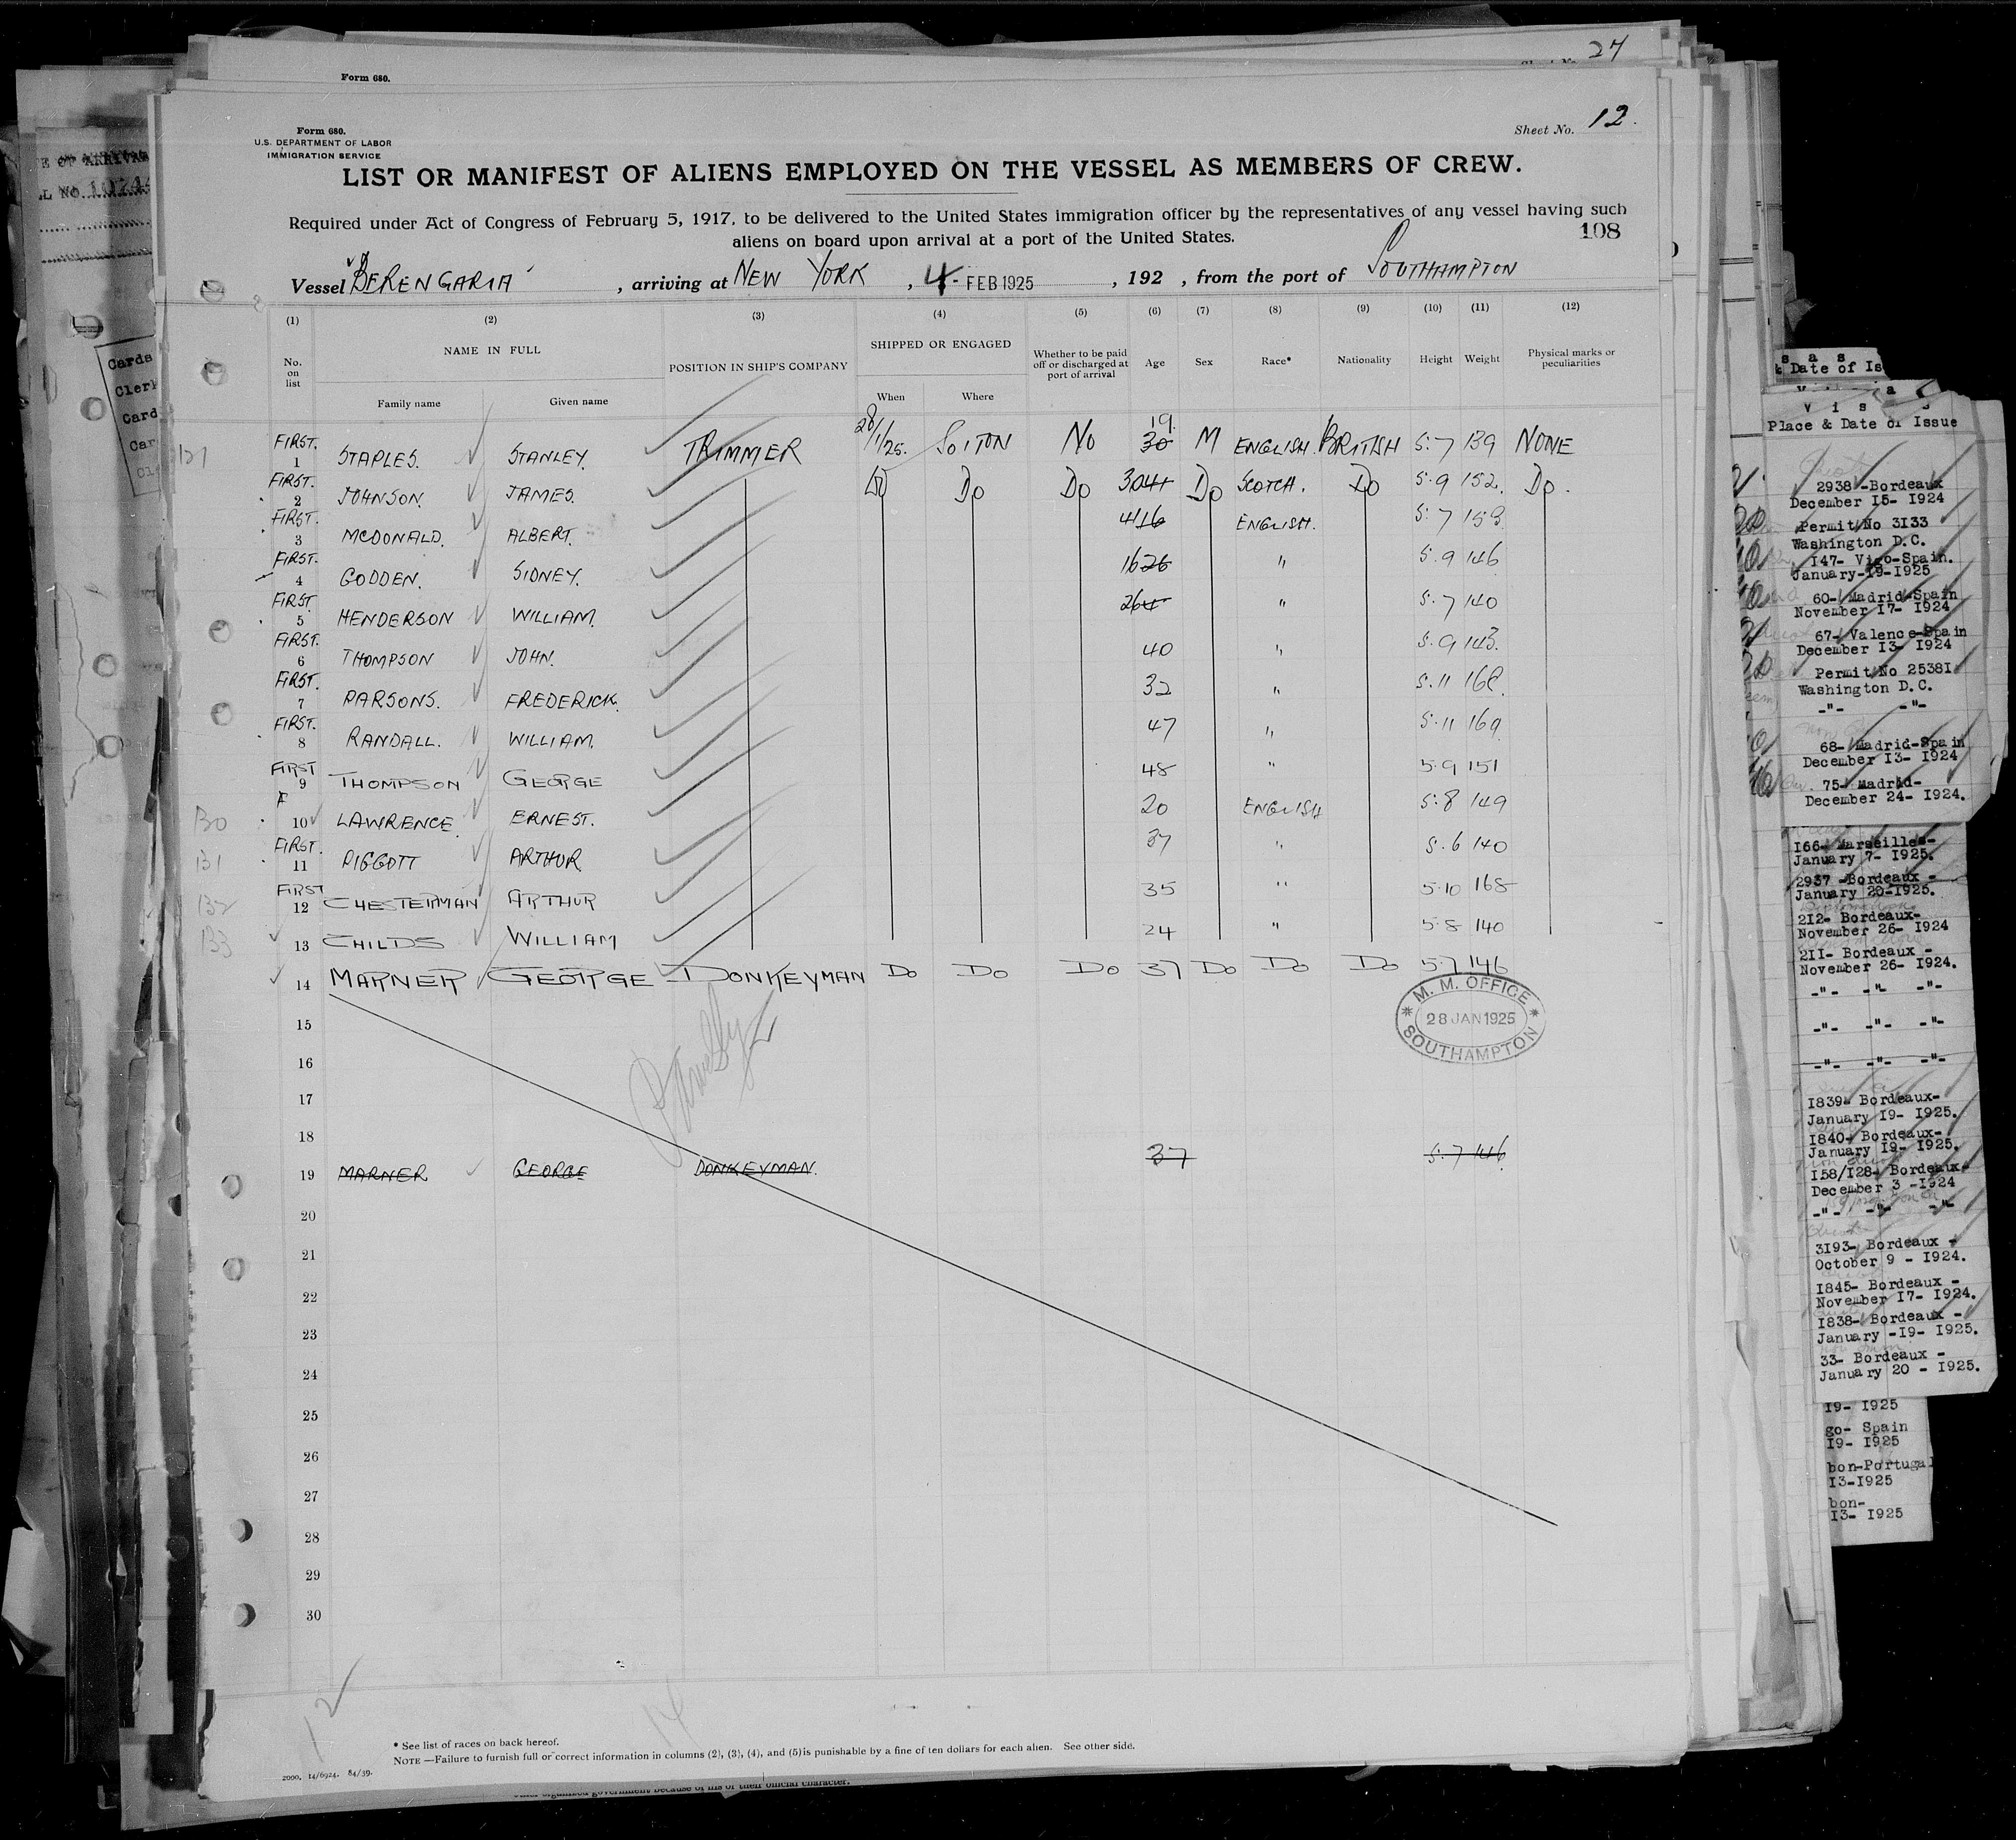 27
Form 680.
Form 680.
U.S. DEPARTMENT OF LABOR
IMMIGRATION SERVICE
Sheet No. 12.
LIST OR MANIFEST OF ALIENS EMPLOYED ON THE VESSEL AS MEMBERS OF CREW.
Required under Act of Congress of February 5, 1917, to be delivered to the United States immigration officer by the representatives of any vessel having such
aliens on board upon arrival at a port of the United States.
108
Vessel BERENGARIA , arriving at NEW YORK , 4 - FEB 1925 , 192 , from the port of SOUTHAMPTON
(1) (2) (3) (4) (5) (6) (7) (8) (9) (10) (11) (12)
No. on list NAME IN FULL POSITION IN SHIP'S COMPANY SHIPPED OR ENGAGED Whether to be paid off or discharged at port of arrival Age Sex Race* Nationality Height Weight Physical marks or peculiarities
Family name Given name When Where
FIRST. 1 STAPLES. STANLEY. TRIMMER 28/1/25. SO'TON NO 30 19. M ENGLISH. BRITISH 5.7 139 NONE
FIRST. 2 JOHNSON. JAMES. DO DO DO 30 41 DO SCOTCH. DO 5.9 152. DO.
FIRST. 3 MCDONALD. ALBERT. 41 16 ENGLISH. 5.7
FIRST. 4 GODDEN. SIDNEY. 16 26 " 5.9 146
FIRST. 5 HENDERSON WILLIAM. 26 " 5.7 140
FIRST. 6 THOMPSON JOHN. 40 " 5.9 143.
FIRST. 7 PARSONS. FREDERICK. 32 " 5.11
FIRST. 8 RANDALL. WILLIAM. 47 " 5.11 169.
FIRST 9 THOMPSON GEORGE 48 " 5.9 151
F 10 LAWRENCE. ERNEST. 20 ENGLISH 5.8 149
FIRST. 11 PIGGOTT ARTHUR 37 " 5.6 140
FIRST 12 CHESTERMAN ARTHUR 35 " 5.10 168
13 CHILDS WILLIAM 24 " 5.8 140
14 MARNER GEORGE DONKEYMAN DO DO DO 37 DO DO DO 5.7 146
M. M. OFFICE
28 JAN 1925
SOUTHAMPTON
15
16
17
18
19 MARNER GEORGE DONKEYMAN. 37 5.7 146
20
21
22
23
24
25
26
27
28
29
30
12
14
* See list of races on back hereof.
NOTE —Failure to furnish full or correct information in columns (2), (3), (4), and (5) is punishable by a fine of ten dollars for each alien. See other side.
2000. 14/6924. 84/39.
Cards
Clerk
Card
Car
& Date of Is
V i s
Place & Date of Issue
2938 -Bordeaux
December 15- 1924
Permit No 3133
Washington D.C.
147- Vigo-Spain.
January-19-1925
60- Madrid-Spain
November 17- 1924
67- Valence-Spain
December 13- 1924
Permit No 25381
Washington D.C.
-"- -"-
68- Madrid-Spain
December 13- 1924
75- Madrid-
December 24- 1924.
166- Marseilles-
January 7- 1925.
2937 -Bordeaux -
January 20-1925.
212- Bordeaux-
November 26- 1924
211- Bordeaux -
November 26- 1924.
-"- -"- -"-
-"- -"- -"-
-"- -"- -"-
1839- Bordeaux-
January 19- 1925.
1840- Bordeaux-
January 19- 1925.
158/128- Bordeaux-
December 3 -1924
-"- -"- -"-
3193- Bordeaux -
October 9 - 1924.
1845- Bordeaux -
November 17- 1924.
1838- Bordeaux -
January -19- 1925.
33- Bordeaux -
January 20 - 1925.
19- 1925
go- Spain
19- 1925
bon-Portugal
13-1925
bon-
13- 1925